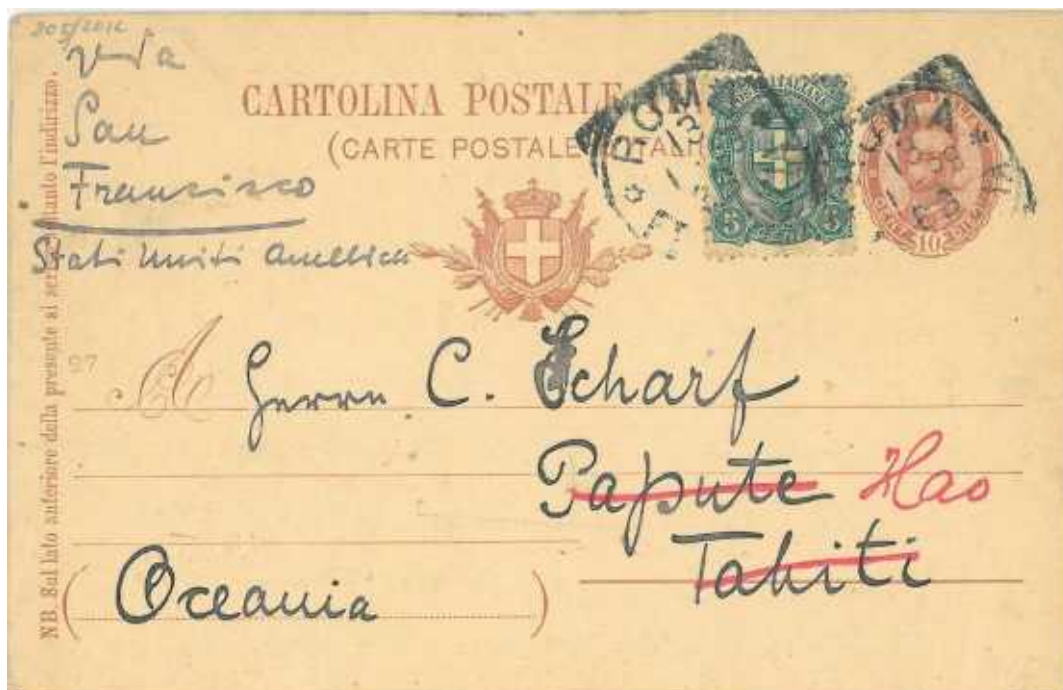 305/2012
via
San
Francisco
Stati Uniti America
CARTOLINA POSTALE
(CARTE POSTALE
ROMA
ROMA
5
5
10
97
A Herrn C. Scharf
Papute Hao
Tahiti
(Oceania)
NB. Sul lato anteriore della presente si scrive soltanto l'indirizzo.